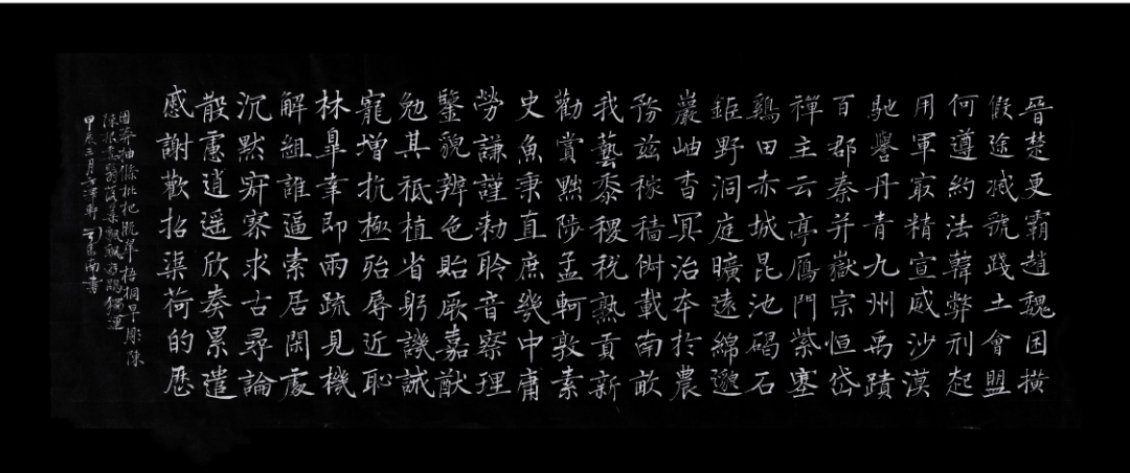 晉楚更霸趙魏困橫
假途滅虢踐土會盟
何遵約法韓弊刑起
用軍最精宣威沙漠
馳譽丹青九州禹蹟
百郡秦并嶽宗恒岱
禪主云亭鴈門紫塞
鷄田赤城昆池碣石
鉅野洞庭曠遠綿邈
巖岫杳冥治本於農
務茲稼穡俶載南畝
我藝黍稷稅熟貢新
勸賞黜陟孟軻敦素
史魚秉直庶幾中庸
勞謙謹勅聆音察理
鑒貌辨色貽厥嘉猷
勉其祗植省躬譏誡
寵增抗極殆辱近恥
林皋幸即兩疏見機
解組誰逼索居閑處
沉默寂寥求古尋論
散慮逍遙欣奏累遣
慼謝歡招渠荷的歷
園莽抽條枇杷晚翠梧桐早彫陳
根委翳落葉飄颻游鵾獨運
甲辰三月軒雨書